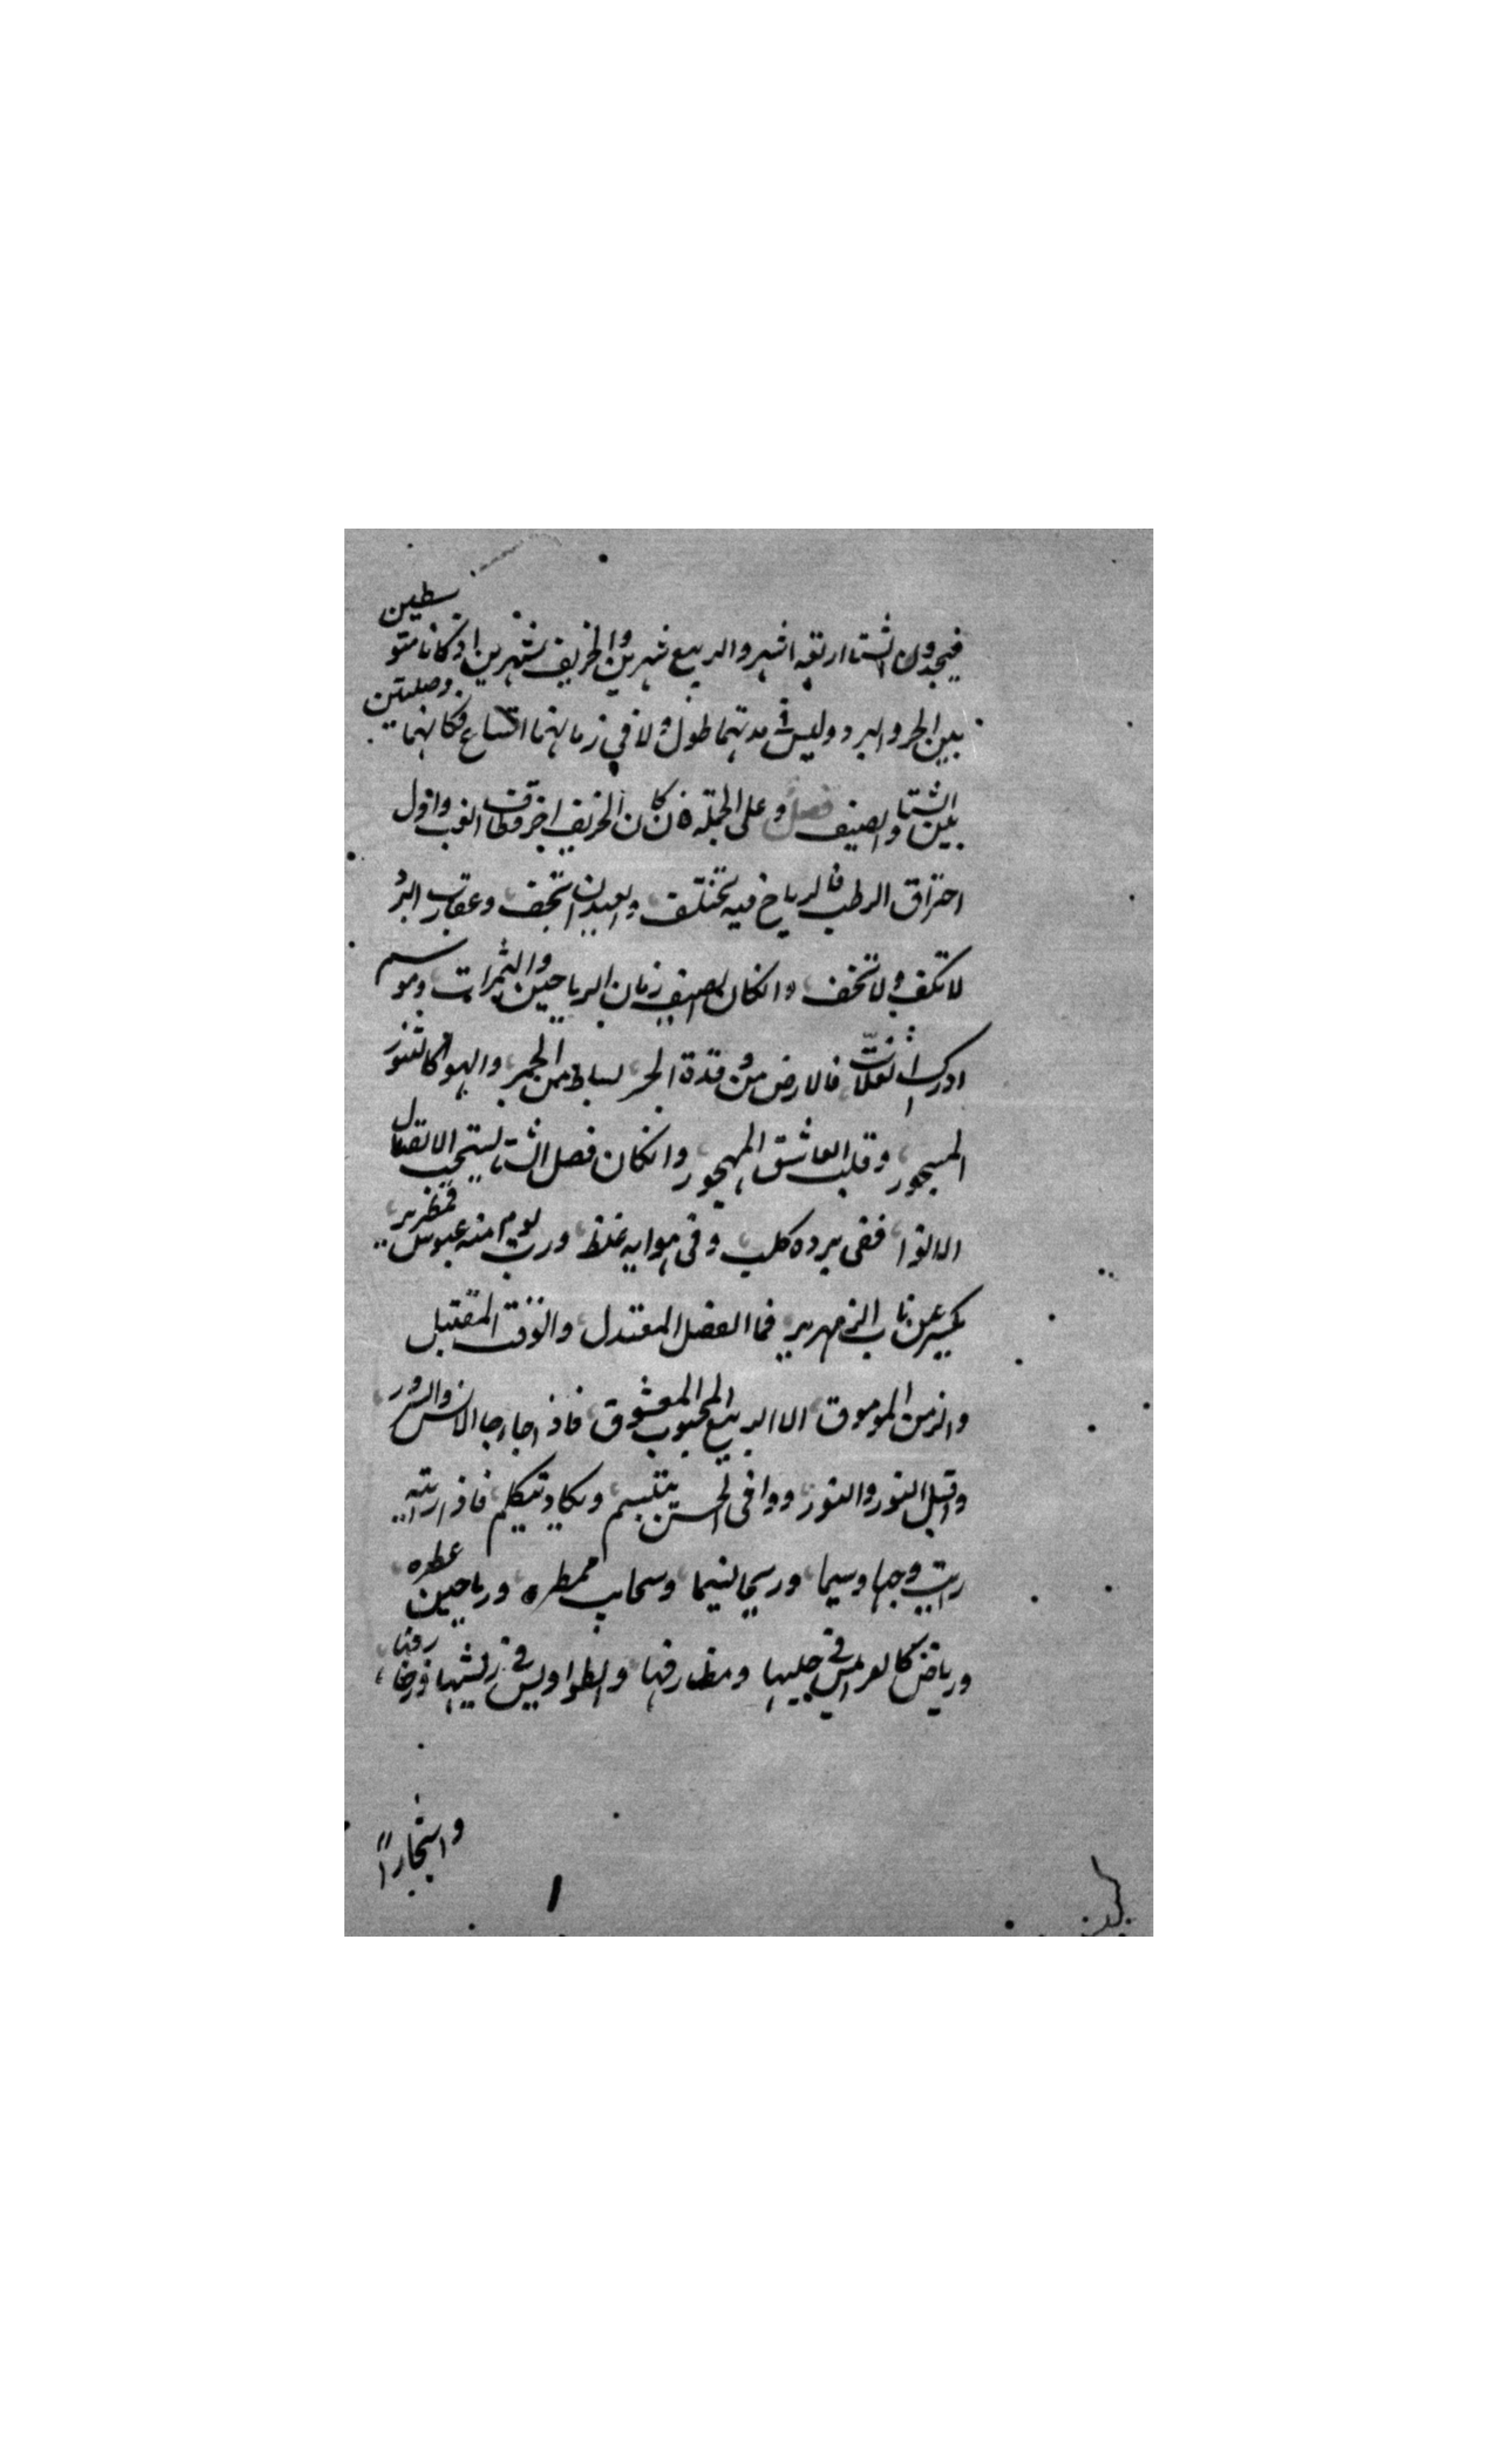 فيجدون الشتا اربعه اشهر والربيع شهرين والخريف شهرين اذ كانا متوسطين
بين الحر والبرد وليس في مدتهما طول ولا في زمانهما اتساع فكانهما وصلتين
بين الشتا والصيف فصل وعلى الجمله فان كان الخريف اخر وقت قطاف العنب واول
احتراق الرطب فالرياح فيه تختلف والعيدان تجف وعقارب البرد
لا تكف ولا تخف وانكان الصيف زمان الرياحين والثمرات وموسم
ادراك الغلات فالارض من وقدة الحر بساط من الجمر والهوا كالتنور
المسجور وقلب العاشق المهجور وانكان فصل الشتا يستحب الاتصال
الا لنوا ففى برده كلب وفى هوايه غلظ ورب يوم منه عبوس قمطرير
يكسر عن ناب الزمهرير فما الفصل المعتدل والوقت المقتبل
والزمن الموموق الا الربيع المحبوب المعشوق فاذا جا جا الانس والسرور
واقبل النور والنور ووافى الحسن يتبسم ويكاد يتكلم فاذا رايته
رايت وجها وسيما وريحا نسيما وسحايب ممطره ورياحين عطره
ورياض كالعرايس في حليها ومطارفها والطواويس في ريشها وزخارفها
واشجاراً